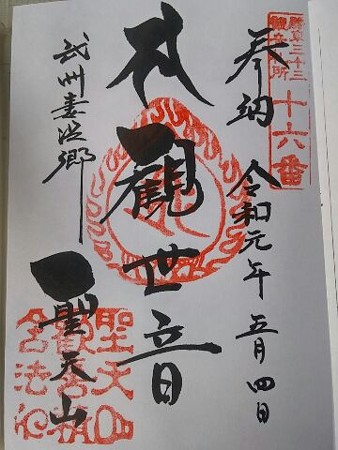 三十三
十六番
奉納
令和元年五月四日
観世音
武州妻沼郷
聖天山
聖天山
歓喜院